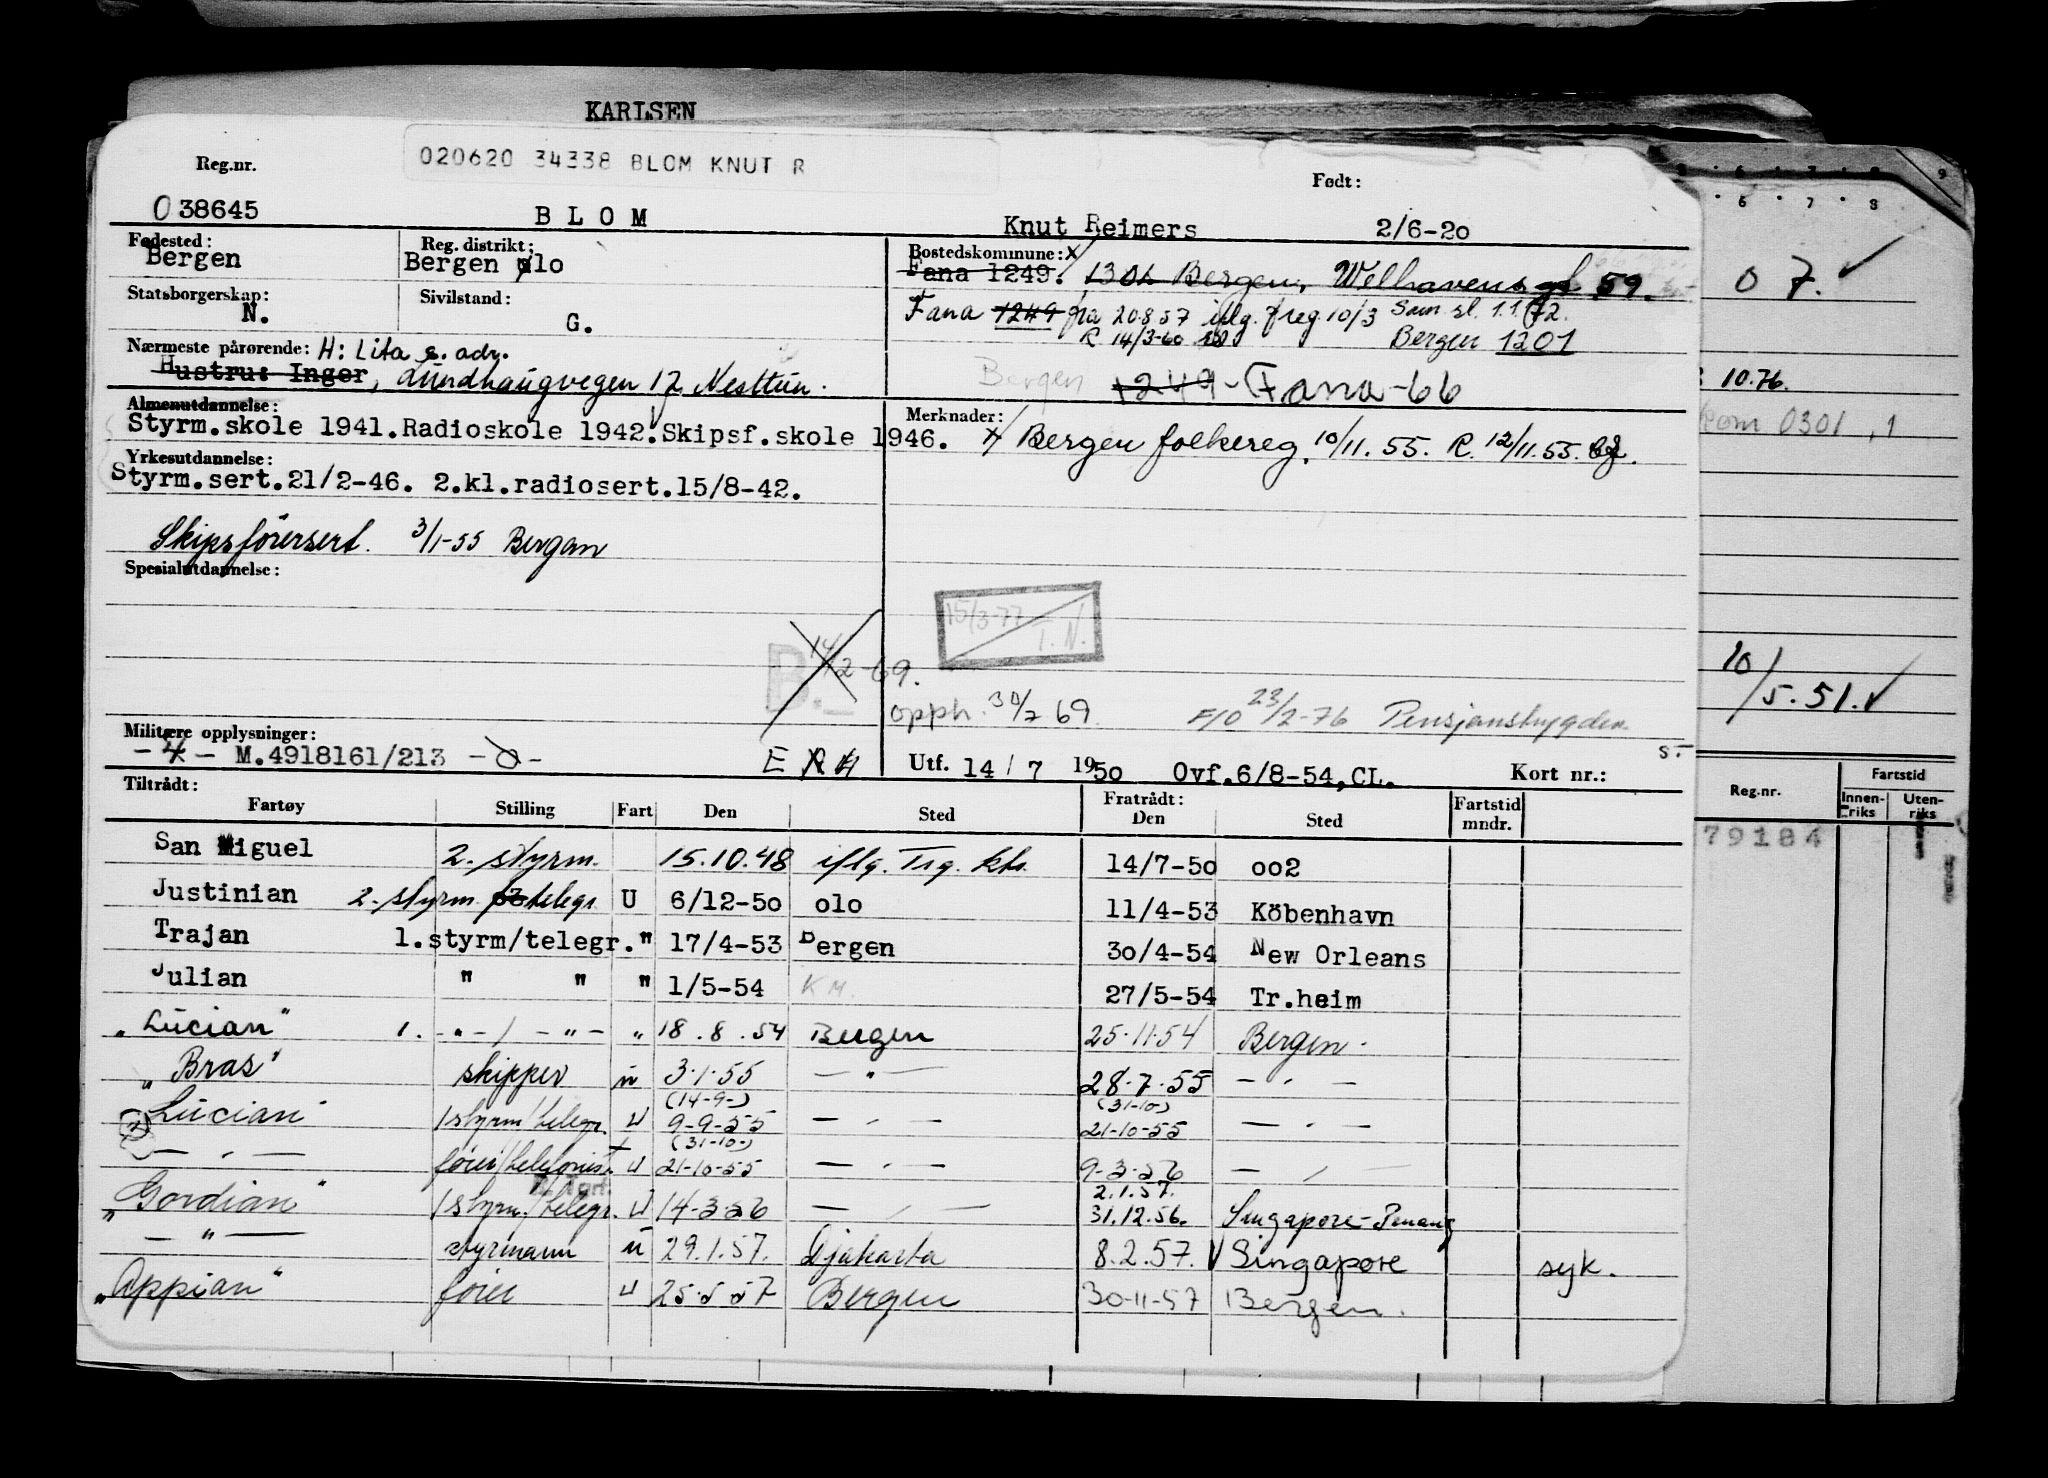 KARLSEN
020620 34338 BLOM KNUT R
Reg.nr. Født:
038645 BLOM Knut Reimers 2/6-20
Fødested: Reg. distrikt: Bostedskommune: x
Bergen Bergen olo Fana 1249. 1301 Bergen, Welhavens gt 59.
Statsborgerskap: Sivilstand:
N. G. Fana 1249 fra 20.8.57 iflg. freg. 10/3 Sam. sl. 1.1.72.
R 14/3-60 Bergen 1201
Nærmeste pårørende: H: Lita s. adr.
Hustru: Inger, Lundhaugvegen 17 Nesttun. Bergen 1249 - Fana -66
Almenutdannelse: Merknader:
Styrm.skole 1941.Radioskole 1942.Skipsf.skole 1946. x/ Bergen folkereg. 10/11.55. R. 12/11.55.
Yrkesutdannelse:
Styrm.sert.21/2-46. 2.kl.radiosert.15/8-42.
Skipsførersert. 3/1-55 Bergen
Spesialutdannelse:
15/3-77 T.N.
B. 14/2-69.
opph. 30/7 69. F/O 23/2-76 Pensjonstrygden
Militære opplysninger:
-4- M.4918161/213 -0- E Utf. 14/7 1950 Ovf.6/8-54,CL. Kort nr.: s.-
Tiltrådt: Fratrådt:
Fartøy Stilling Fart Den Sted Den Sted Fartstid mndr.
San Miguel 2. styrm. 15.10.48 iflg. Trg. kts. 14/7-50 oo2
Justinian 2. styrm telegr. U 6/12-50 olo 11/4-53 Köbenhavn
Trajan 1.styrm/telegr. " 17/4-53 Bergen 30/4-54 New Orleans
Julian " " " 1/5-54 KM. 27/5-54 Tr.heim
"Lucian" 1. -"-/ -"- " 18.8.54 Bergen 25.11.54 Bergen.
"Bras" skipper u 3.1.55 -"- 28.7.55 -"-
(14-9-) (31-10)
Lucian" 1styrm/telegr. U 9-9-55 -"- 21-10-55 -"-
(31-10-)
-"- fører/telefonist U 21-10-55 -"- 9-3-56 -"-
2.1.57.
"Gordian" 1styrm./telegr. U 14-3-56 -"- 31.12.56. Singapore-Penang
-"- styrmann u 29.1.57. Djakarta 8.2.57. Singapore syk.
"Appian" fører U 25-5-57 Bergen 30-11-57 Bergen.
6 7 8 9
6 7 8
0 7.
10.76.
kom 0301, 1
10/5.51.
Reg.nr. Fartstid
Innen-riks Uten-riks
79184